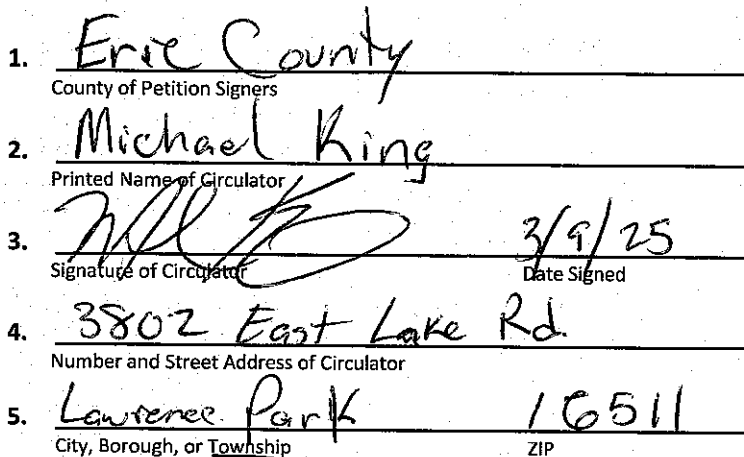 1. Erie County
County of Petition Signers
2. Michael King
Printed Name of Circulator
3. 3/9/25
Signature of Circulator Date Signed
4. 3802 East Lake Rd.
Number and Street Address of Circulator
5. Lawrence Park 16511
City, Borough, or Township ZIP